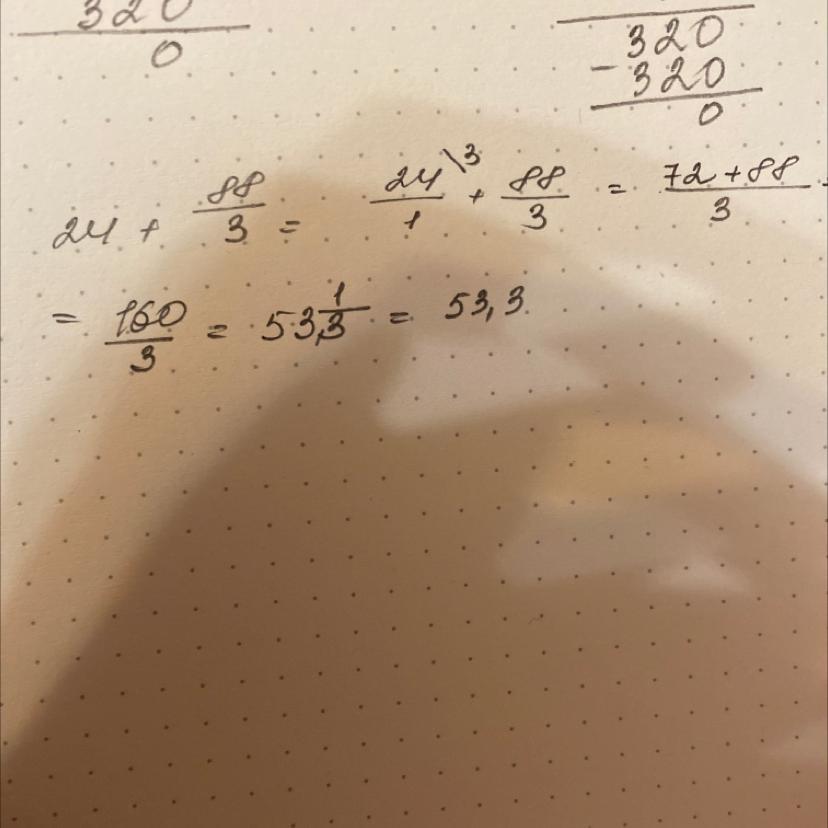 320
0
320
- 320
0
24 + 88/3 = 24\3/1 + 88/3 = 72+88/3 =
= 160/3 = 53 1/3 = 53,3